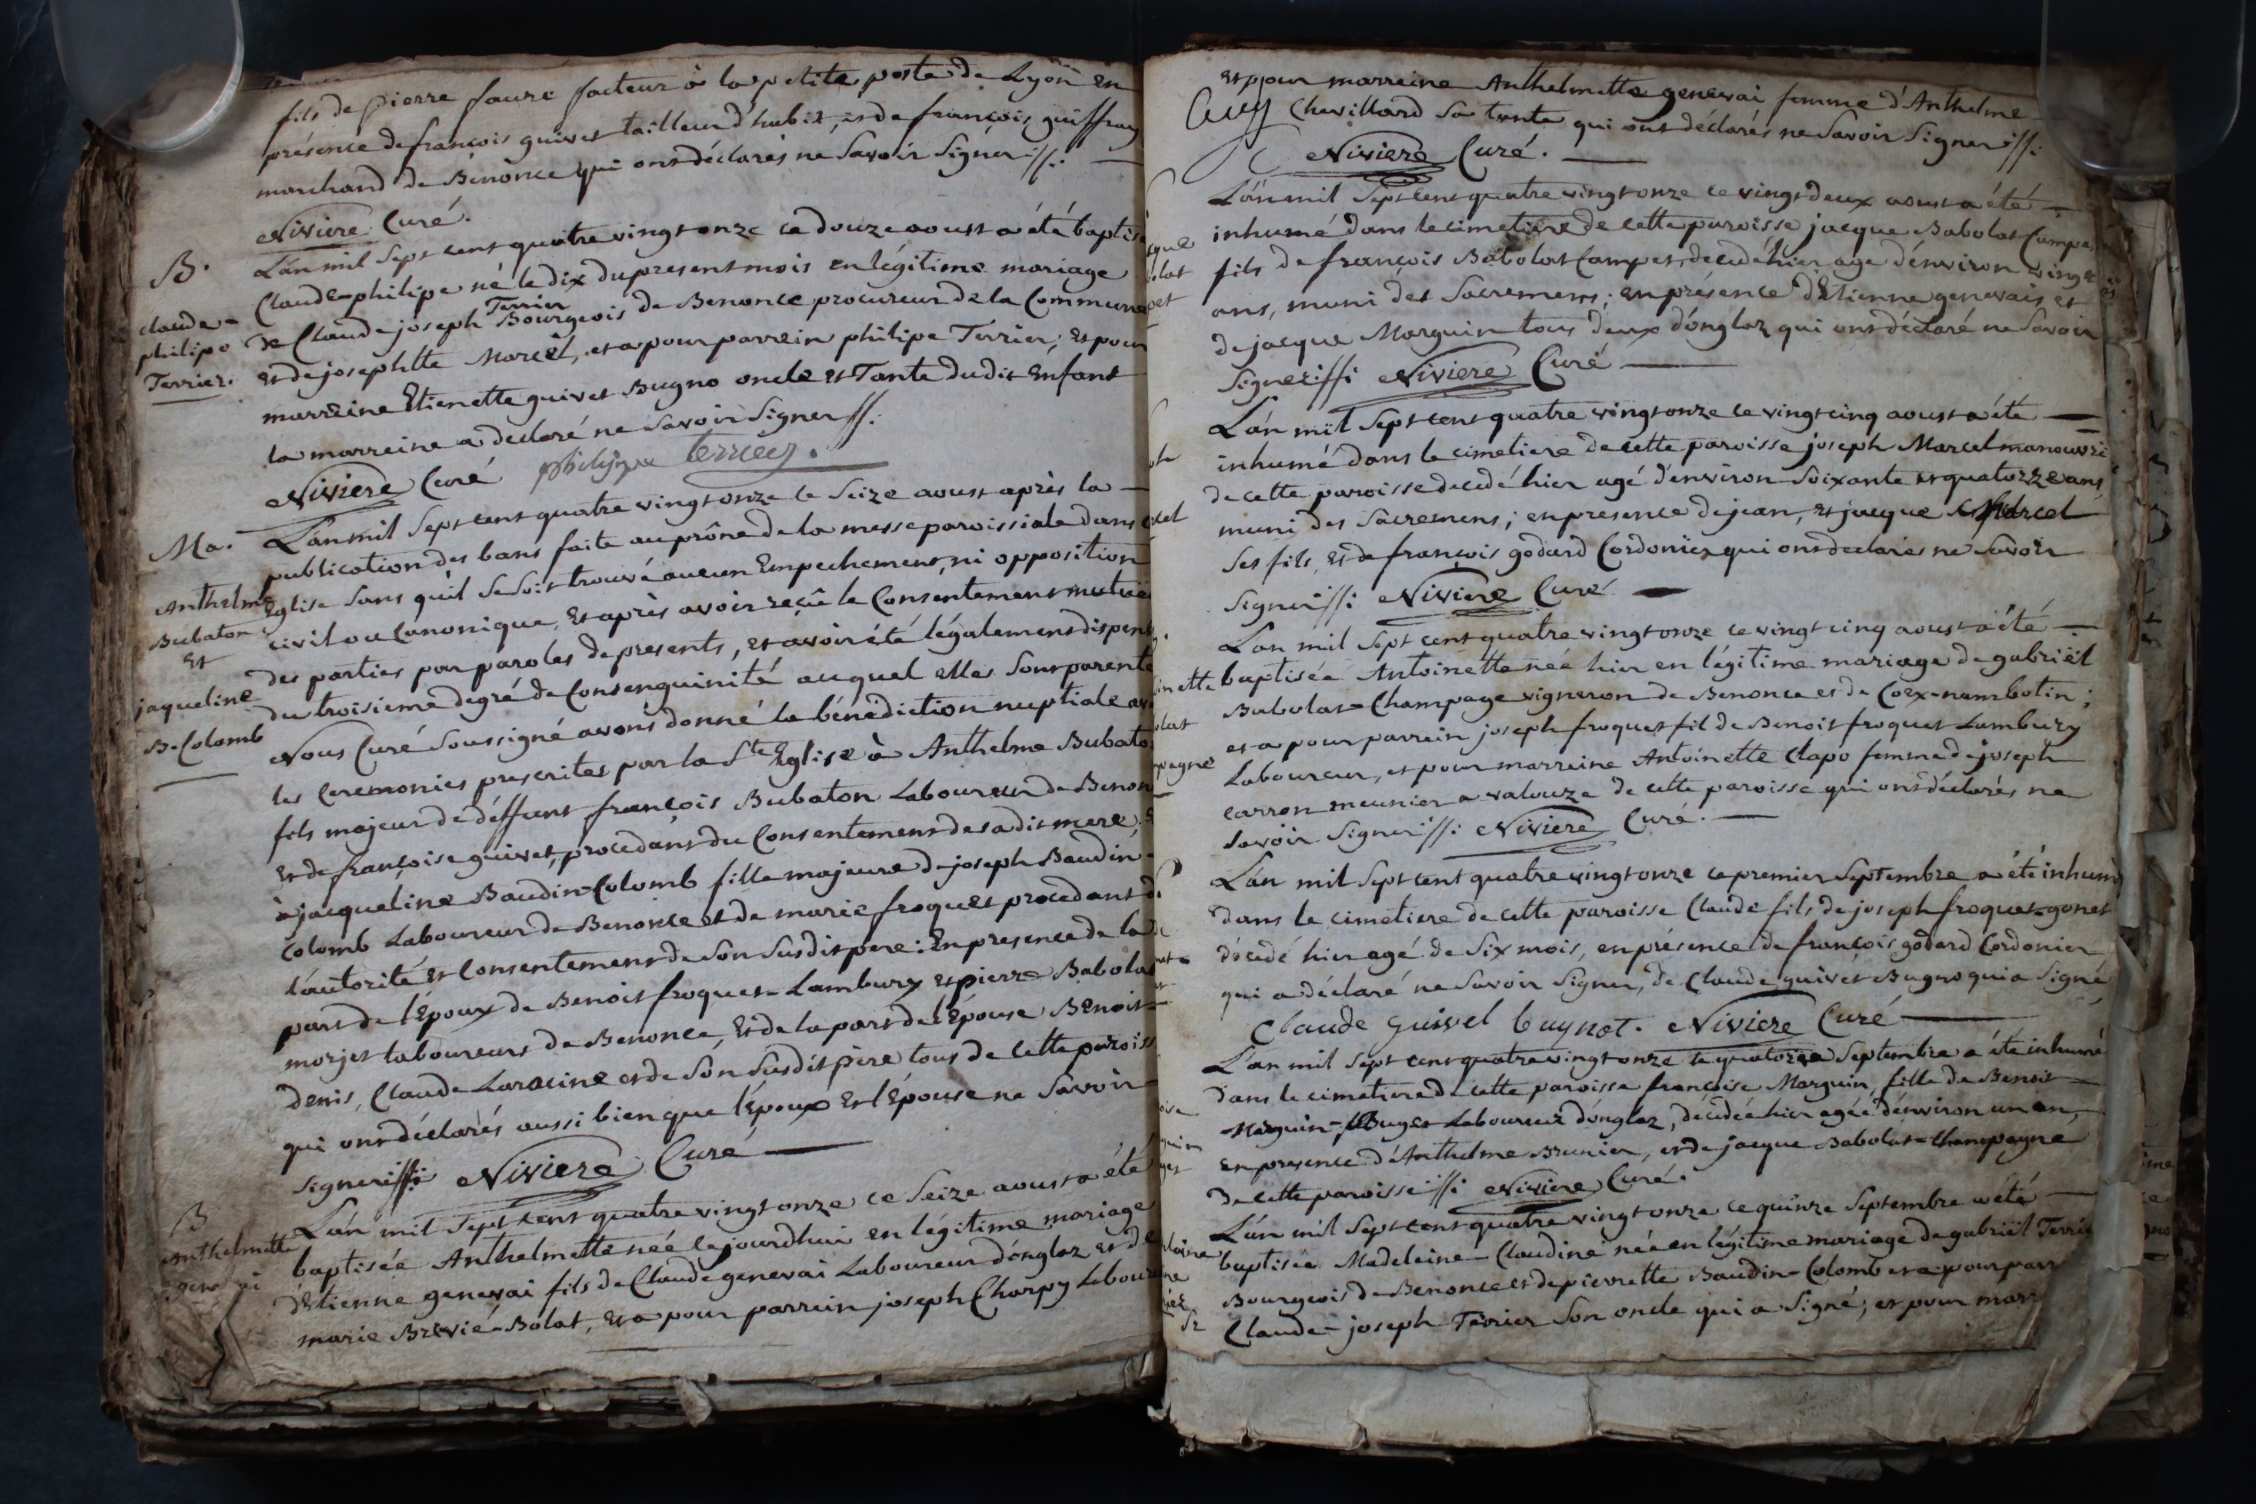 fils de pierre faure facteur à la petite poste de Lyon en
présence de françois guivet tailleur d'habit, et de françois guiffray
marchand de Benonce qui ont déclarés ne Savoir Signer
Niviere Curé.
B.
L'an mil Sept cent quatre vingt onze ce douze aoust a été baptisé
Claude-philipe né le dix du present mois en légitime mariage
claude-
philipe
Terrier.
Terrier
de Claude joseph Bourgeois de Benonce procureur de la Commune
et de josephtte Marcel, et a pour parrein philipe Terrier; et pour
marreine Etienette guivet Bugno oncle et Tante dudit Enfant
la marreine a declaré ne Savoir Signer
Niviere Curé philippe terrier.
Ma.
L'an mil Sept cent quatre vingt onze le Seize aoust après la
publication des bans faite au prône de la messe paroissiale dans
Anthelme
Bubaton
et
jaqueline
B-Colomb
Eglise Sans qu'il Se Soit trouvé aucun Empechement, ni opposition
civil ou Canonique, et après avoir reçû le Consentement mutuel
des parties par paroles de presents, et avoir été légalement dispensé
du troisieme degré de Consenguinité auquel elles Sont parente
Nous Curé Soussigné avons donné la bénédiction nuptiale
les Ceremonies prescrites par la Ste Eglise à Anthelme Bubaton
fils majeur de déffunt françois Bubaton Laboureur de Benon
et de françoise guivet, procedant du Consentement de sadit mere
à jacqueline Baudin-Colomb fille majeure de joseph Baudin-
Colomb Laboureur de Benonce et de marie froquet procedant de
l'autorité et Consentement de Son Susdit pere: En presence de la
part de l'Epoux de Benoit froquet-Lambury et pierre Babolat
morjet laboureurs de Benonce, Et de la part de l'Epouse Benoit-
denis, Claude Laracine et de Son Susdit père tous de cette paroiss
qui ont déclarés aussi bien que l'Epoux et l'Epouse ne Savoir
Signer Niviere Curé
B
Anthelmette
L'an mil Sept cent quatre vingt onze ce Seize aoust a été
baptisée Anthelmette née ce jourdhui en légitime mariage
d'Etienne genevai fils de Claude genevai Laboureur d'onglaz et de
marie Brevié-Bolat, et a pour parrein joseph Charpy Laboureur
et pour marreine Anthelmette genevai femme d'Anthelme
Chevillard Sa tante qui ont déclarés ne Savoir Signer
Niviere Curé.
L'an mil Sept cent quatre vingt onze ce vingt deux aoust a été
inhumé dans le cimetiere de cette paroisse jacque Babolat Campe
fils de françois Babolat Campet, décédé hier agé d'environ vingt
ans, muni des Sacremens; en présence d'Etienne genevais et
de jacque Marguin tous deux d'onglaz qui ont déclaré ne Savoir
Signer Niviere Curé
L'an mil Sept cent quatre vingt onze ce vingt cinq aoust a été
inhumé dans le cimetiere de cette paroisse joseph Marcel manouvri
de cette paroisse decédé hier agé d'environ Soixante et quatorze ans
muni des Sacremens; en presence de jean, et jacque Marcel
Ses fils, et de françois godard Cordonier qui ont declarés ne Savoir
Signer Niviere Curé
L'an mil Sept cent quatre vingt onze ce vingt cinq aoust a été
baptisée Antoinette née hier en légitime mariage de gabriël
Babolat-Champagne vigneron de Benonce et de Coex-nambotin;
et a pour parrein joseph froquet fil de Benoit froquet Lambury
Laboureur, et pour marreine Antoinette Clapo femme de joseph
carron meunier a valouze de cette paroisse qui ont déclarés ne
Savoir Signer Niviere Curé.
L'an mil Sept cent quatre vingt onze ce premier Septembre a été inhumé
dans le cimetiere de cette paroisse Claude fils de joseph froquet-gonet
décédé hier agé de Six mois, en présence de françois godard Cordonier
qui a déclaré ne Savoir Signer, de Claude guivet Bugno qui a Signé
Claude guivel bugnot. Niviere Curé
L'an mil Sept cent quatre vingt onze le quatorze Septembre a été inhumé
dans le cimetiere de cette paroisse françoise Marguin, fille de Benoit
Marguin-Buget Laboureur d'onglaz, décédée hier agée d'environ un an,
en presence d'Anthelme Brunier, et de jacque Babolat-Champagne
de cette paroisse Niviere Curé.
L'an mil Sept cent quatre vingt onze ce quinze Septembre a été
baptisée Madeleine-Claudine née en légitime mariage de gabriël Terrier
Bourgeois de Benonce et de pierrette Baudin-Colomb et a pour parr
Claude-joseph Terrier Son oncle qui a Signé; et pour marr